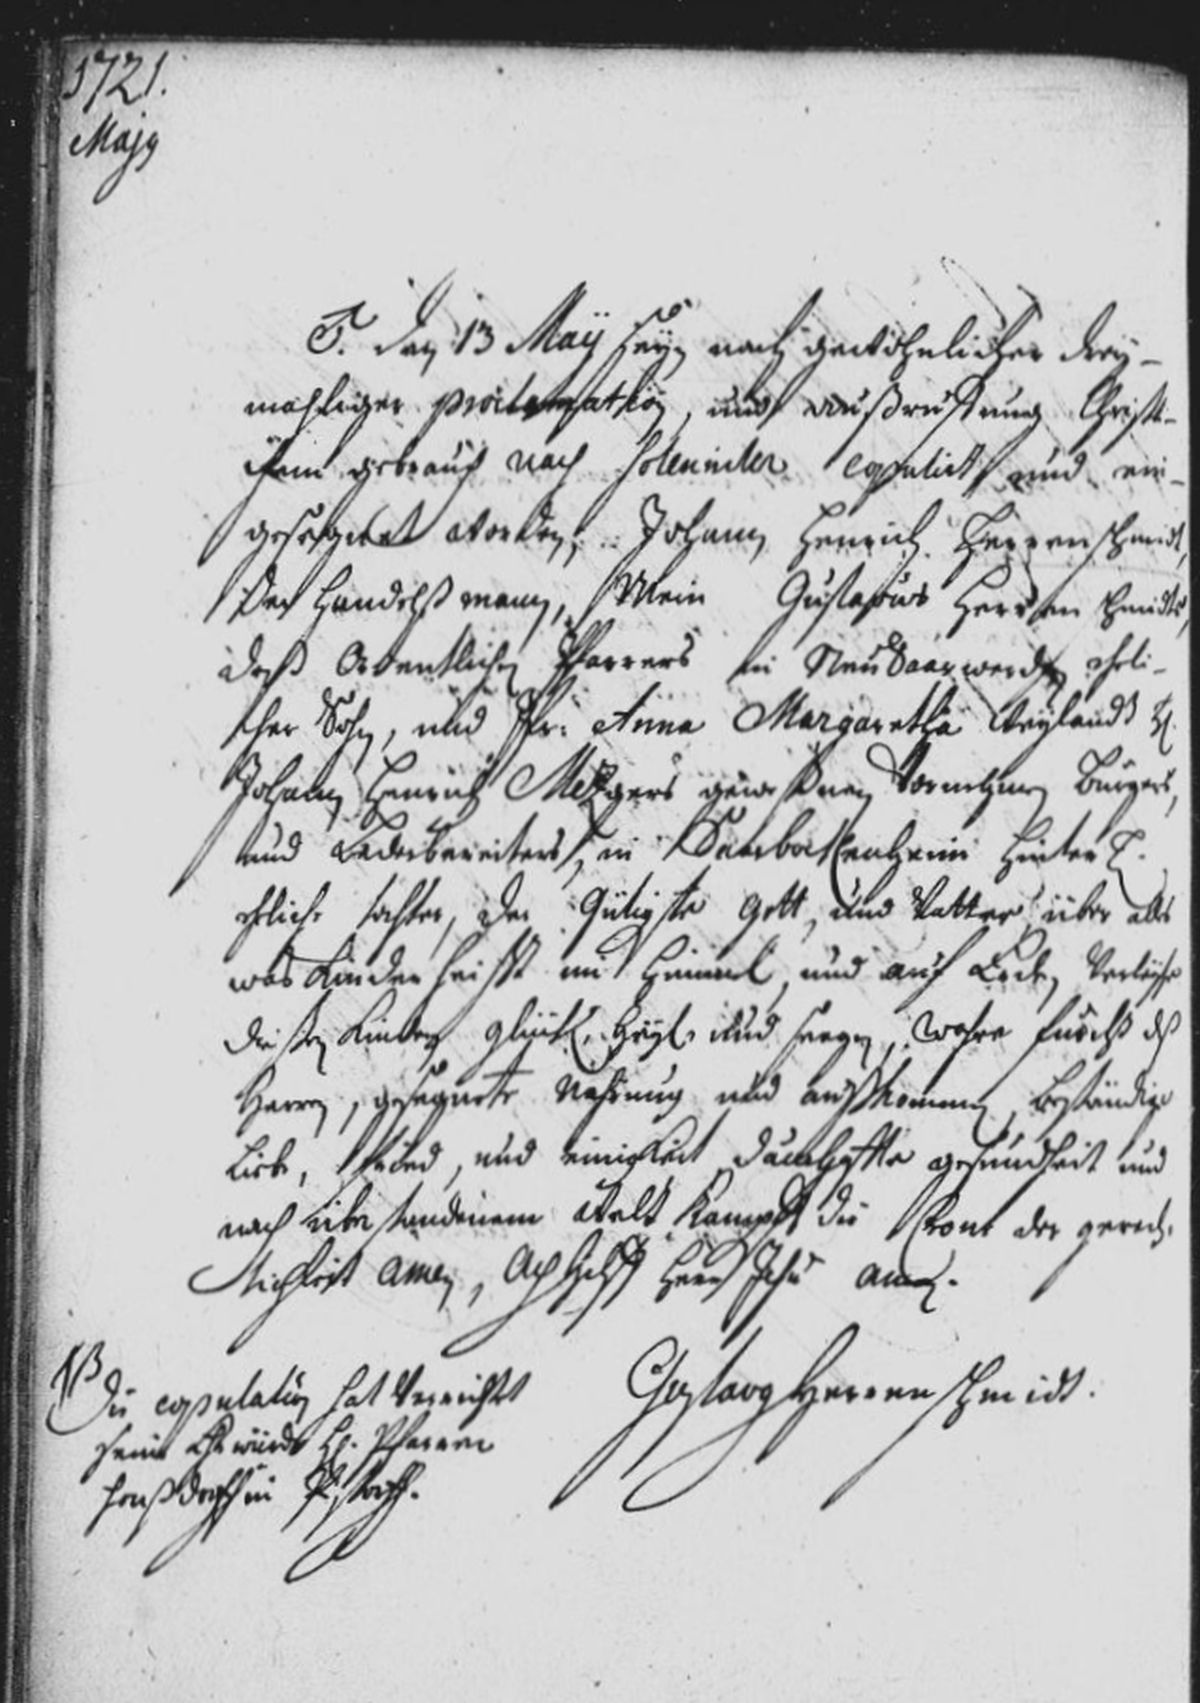 1721.
Majo
d. den 13 Maÿ seyn nach gewöhnlicher drey-
mahliger proclamation, und außruffung Christ-
gebrauch nach solenniter copulirt und ein-
gesegnet worden, Johann Henrich Herrenschmidt,
Der Handelßmann, Mein Gustavus Herrenschmidts,
deß Ordentlichen Pfarrers in NeuSaarwerden eheli-
cher Sohn, und Jfr: Anna Margaretha weylandt H.
Johann Henrich Metzgers geweßenen Vornehmen Bürgers,
und Lederbereiters, in Saarbockenheim hinterl.
ehliche tochter, der Gütigste Gott, und Vatter über alles
was Kinder heißt im Himmel, und auf Erden, Verleyhe
dießen Kindern glück, Heyl und seegen, wahre furcht deß
Herren, gesegnete Nahrung und außkommen, beständige
Liebe, fried, und einigkeit, dauerhaffte gesundheit und
nach überstandenem Kampff die Krone der gerech-
tigkeit Amen, Ach helff Herr Jesu amen.
NB
Die copulation hat verrichtet
seine Ehrwürd H. Pfarrer
in
Gustavg Herrenschmidt.